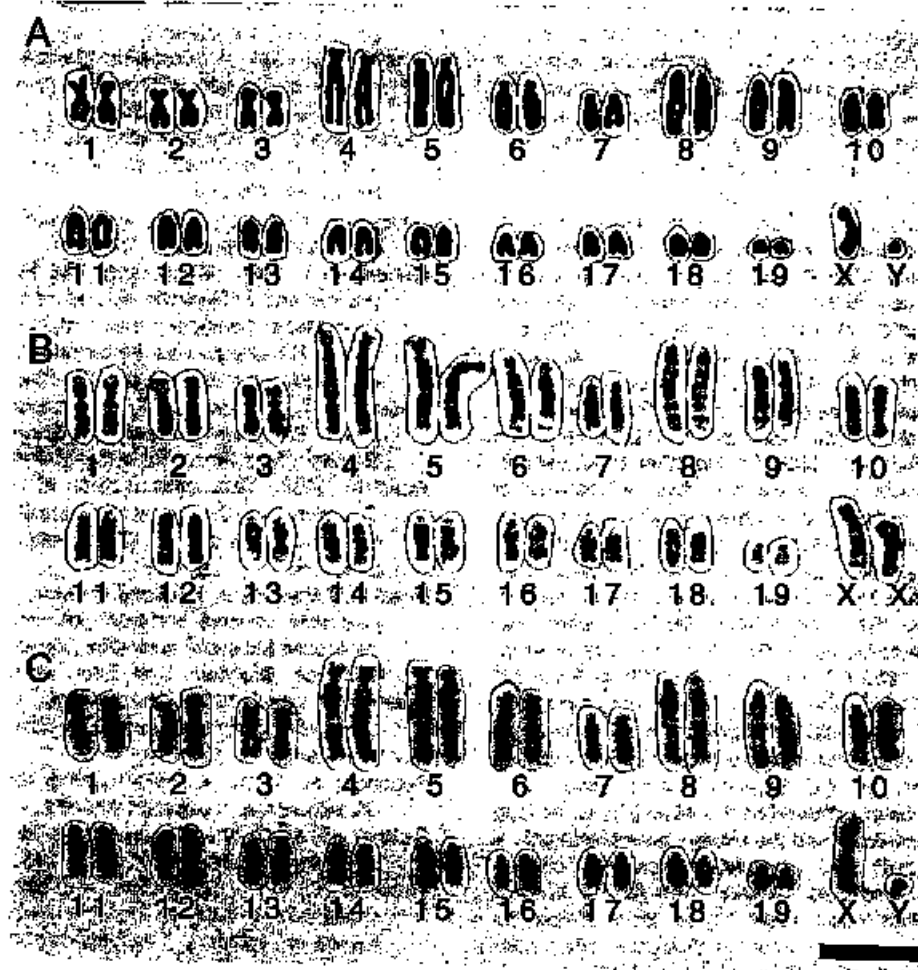 A
1 2 3 4 5 6 7 8 9 10
11 12 13 14 15 16 17 18 19 X Y
B
1 2 3 4 5 6 7 8 9 10
11 12 13 14 15 16 17 18 19 X X
C
1 2 3 4 5 6 7 8 9 10
11 12 13 14 15 16 17 18 19 X Y